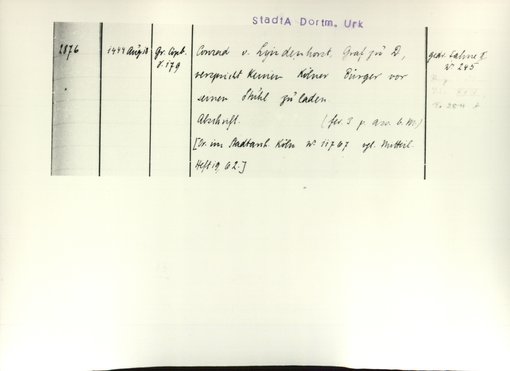 StadtA Dortm. Urk
2876
1444 Aug 18
Gr. Copb. I. 179
Conrad v. Lyndenhorst, Graf zu D,
verspricht keinen Kölner Bürger vor
seinen Stuhl zu laden
Abschrift. (fer. 3 p. ass. b. M.)
[Or. im Stadtarch. Köln No 11767 vgl. Mitteil.
Heft 19, 62.]
gedr. Fahne II
No 245